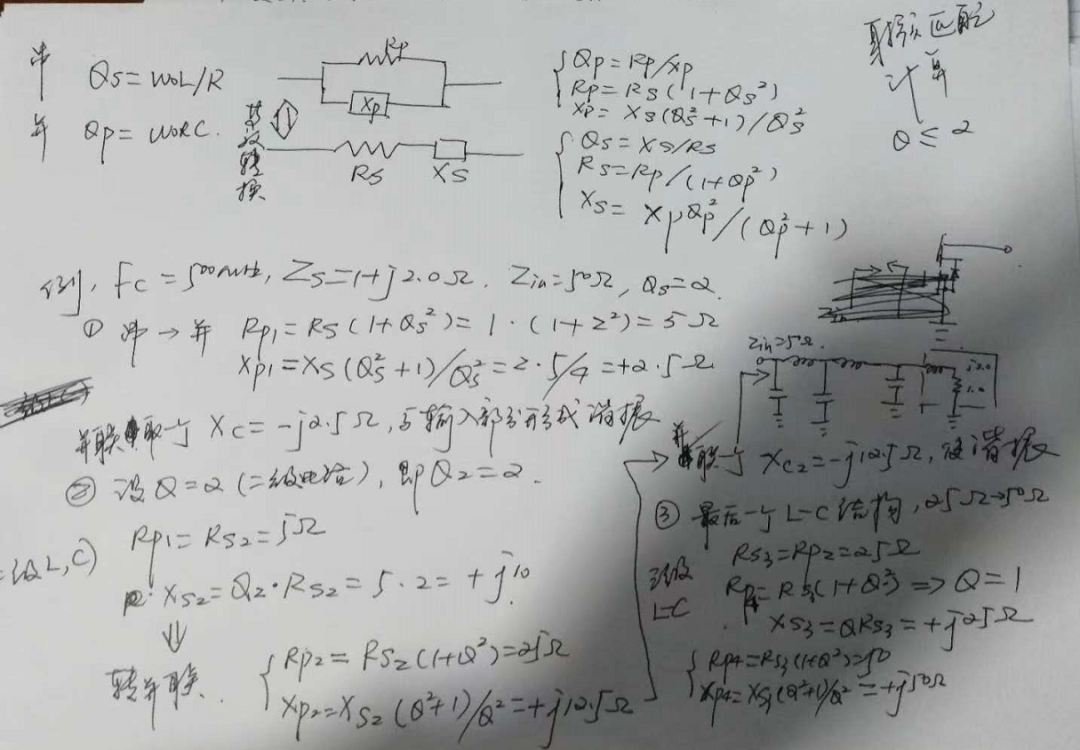 串 Qs=ω0L/R
并 Qp=ω0RC.
等效转换
Rp
Xp
Rs Xs
Qp=Rp/Xp
Rp=Rs(1+Qs²)
Xp=Xs(Qs²+1)/Qs²
Qs=Xs/Rs
Rs=Rp/(1+Qp²)
Xs=XpQp²/(Qp²+1)
匹配
计算
Q≤2
例, Fc=500MHz, Zs=1+j2.0Ω. Zin=50Ω, Qs=2.
① 串→并 Rp1=Rs(1+Qs²)=1·(1+2²)=5Ω
Xp1=Xs(Qs²+1)/Qs²=2·5/4=+2.5Ω
并联取一个 Xc=-j2.5Ω,与输入部分形成谐振
② 设Q=2(二级电路),即Q2=2.
Rp1=Rs2=5Ω
二级L,C)
Xs2=Q2·Rs2=5·2=+j10
⇓
转并联.
Rp2=Rs2(1+Q²)=25Ω
Xp2=Xs2(Q²+1)/Q²=+j12.5Ω
Zin=50Ω.
j2.0
1.0
并联一个 Xc2=-j12.5Ω,使谐振
③ 最后一个L-C结构,25Ω→50Ω
三级
L-C
Rs3=Rp2=25Ω
Rp4=Rs3(1+Q²)=>Q=1
Xs3=QRs3=+j25Ω
Rp4=Rs3(1+Q²)=50
Xp4=Xs3(Q²+1)/Q²=+j50Ω